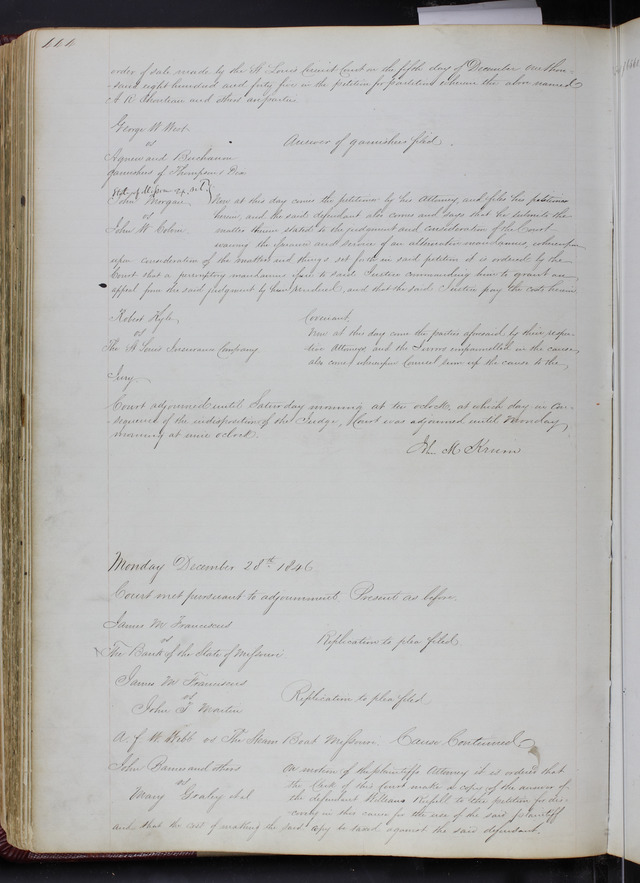 order of sale made by the St Louis Circuit Court on the fifth day of December one thou-
sand eight hundred and forty five in the petition for partition wherein the above named
A R Chouteau and others are parties
George W West
vs
Answer of garnishees filed.
Agnew and Buchanan
garnishees of Thompson &
John Morgan
vs
John W Colvin
Now at this day comes the petitioner by his Attorney, and files his petition
herein, and the said defendant also comes and says that he submits the
matters therein stated to the judgment and consideration of the Court
waiving the issuance and service of an alternative mandamus, whereupon
upon consideration of the matters and things set forth in said petition it is ordered by the
Court that a peremptory mandamus issue to said Justice commanding him to grant an
appeal from the said judgment by him rendered, and that the said Justice pay the costs herein
Robert Kyle
vs
The St Louis Insurance Company
Covenant
Now at this day came the parties aforesaid by their respec-
tive Attorneys and the Jurors impannelled in the cause,
also came, whereupon Counsel sum up the cause to the
Jury.
Court adjourned until Saturday morning at ten oclock, at which day in con-
sequence of the indisposition of the Judge, Court was adjourned until Monday
morning at nine oclock.
John M Krum
Monday December 28th 1846
Court met pursuant to adjournment. Present as before.
James M Franciscus
vs
The Bank of the State of Missouri
Replication to plea filed
James M Franciscus
vs
John T Martin
Replication to plea filed
A. f W Webb vs The Steam Boat Missouri. Cause Continued
John Barnes and others
vs
Mary et al
On motion of the plaintiffs Attorney it is ordered that
the Clerk of this Court make a copy of the answer of
the defendant William to the petition for dis-
covery in this cause for the use of the said plaintiff
and that the cost of making the said copy be taxed against the said defendant.